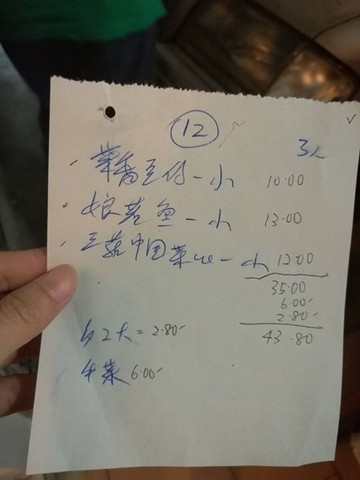 12
3人
香豆付一小 10.00
娘惹鱼一小 13.00
三菇中国菜心一小 12.00
35.00
6.00
2.80
白2大=2.80
43.80
6.00